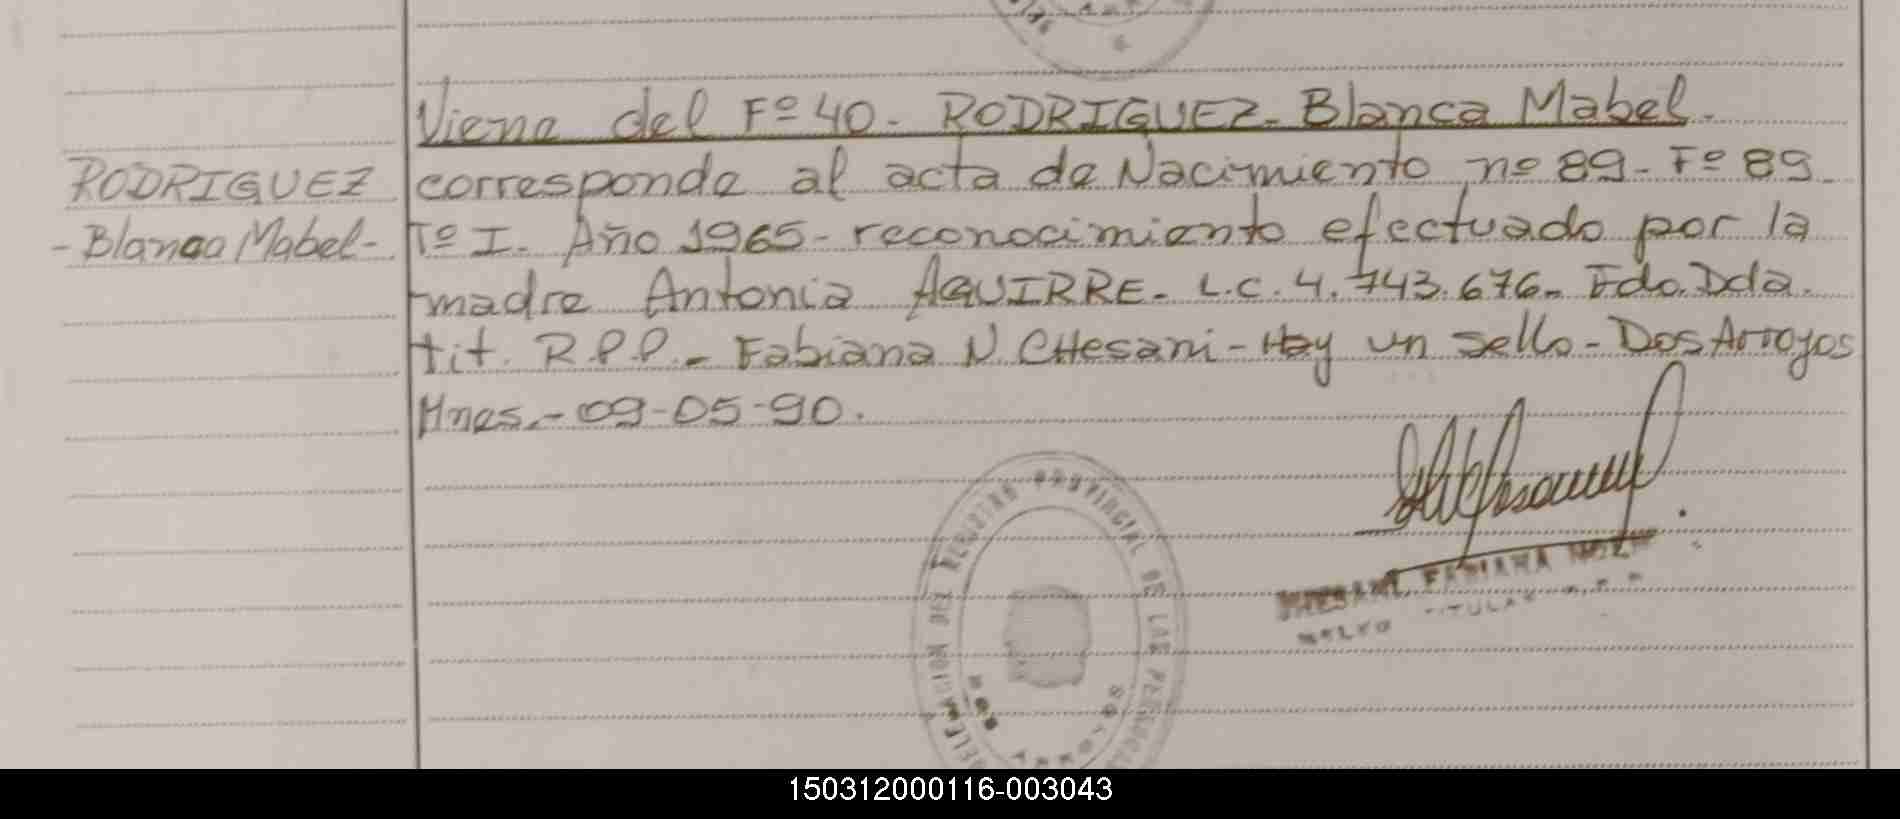 Viene del Fº 40. RODRIGUEZ. Blanca Mabel.
RODRIGUEZ
- Blanca Mabel -
corresponde al acta de Nacimiento nº 89 - Fº 89.
Tº I. Año 1965 - reconocimiento efectuado por la
madre Antonia AGUIRRE. L.C. 4.743.676. Fdo. Dda.
tit. R.P.P. - Fabiana N. CHesani - Hay un sello - Dos Arroyos
Mnes. - 09-05-90.
REGISTRO PROVINCIAL DE LAS PERSONAS
DOS ARROYOS
CHESANI FABIANA NOEMI
TITULAR R.P.P.
150312000116-003043